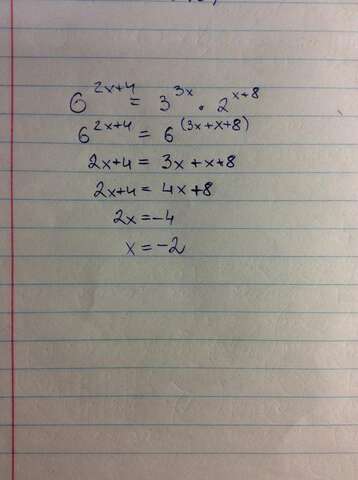 6^(2x+4) = 3^(3x) · 2^(x+8)
6^(2x+4) = 6^(3x+x+8)
2x+4 = 3x+x+8
2x+4 = 4x+8
2x=-4
x=-2